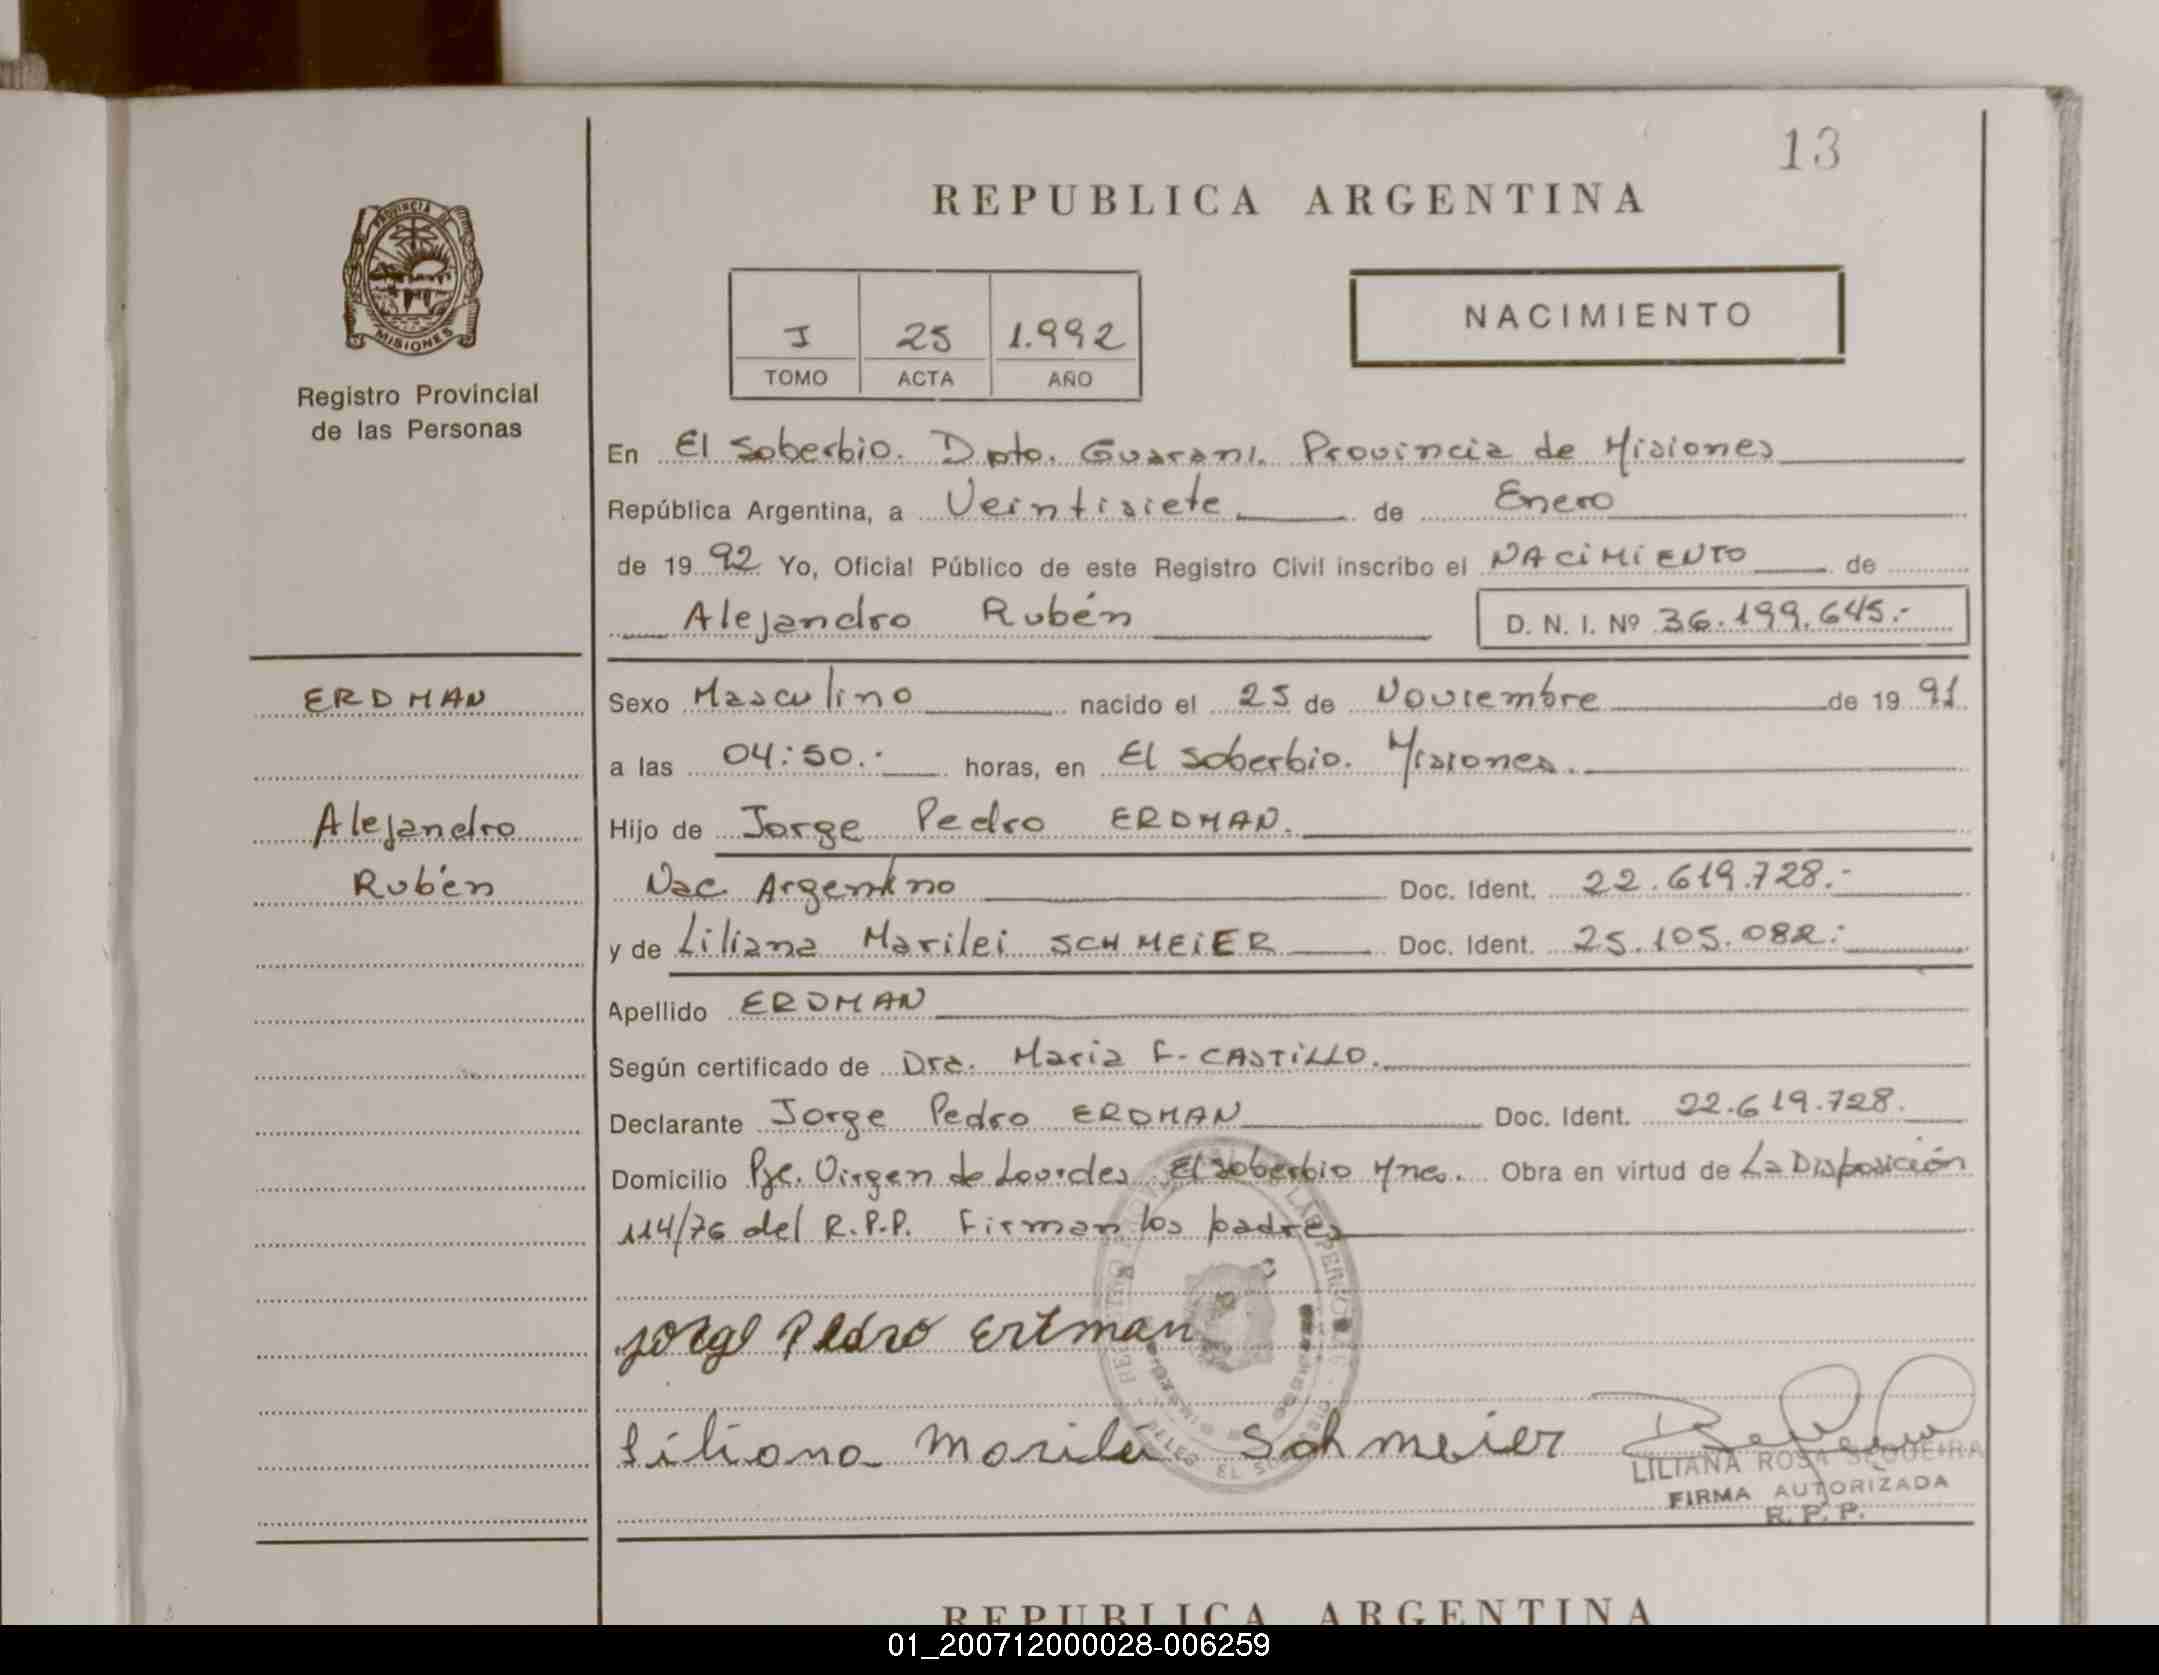 13
REPUBLICA ARGENTINA
PROVINCIA DE
MISIONES
Registro Provincial
de las Personas
J 25 1.992
TOMO ACTA AÑO
NACIMIENTO
En El Soberbio. Dpto. Guaraní. Provincia de Misiones
República Argentina, a Veintisiete de Enero
de 19 92 Yo, Oficial Público de este Registro Civil inscribo el NACiMiENTO de
Alejandro Rubén D. N. I. Nº 36.199.645.-
ERDMAN
Alejandro
Rubén
Sexo Masculino nacido el 25 de Noviembre de 19 91
a las 04:50.- horas, en El Soberbio. Misiones.
Hijo de Jorge Pedro ERDMAN.
Nac. Argentino Doc. Ident. 22.619.728.-
y de Liliana Marilei SCHMEiER Doc. Ident. 25.105.082.-
Apellido ERDMAN
Según certificado de Dra. Maria F. CASTiLLO.
Declarante Jorge Pedro ERDMAN Doc. Ident. 22.619.728.
Domicilio Pje. Virgen de Lourdes El Soberbio Mnes. Obra en virtud de La Disposición
114/76 del R.P.P. Firman los padres
Jorge Pedro Ertman
Liliana Marilei Schmeier
LILIANA ROSA SEQUEIRA
FIRMA AUTORIZADA
R. P. P.
REPUBLICA ARGENTINA
01_200712000028-006259